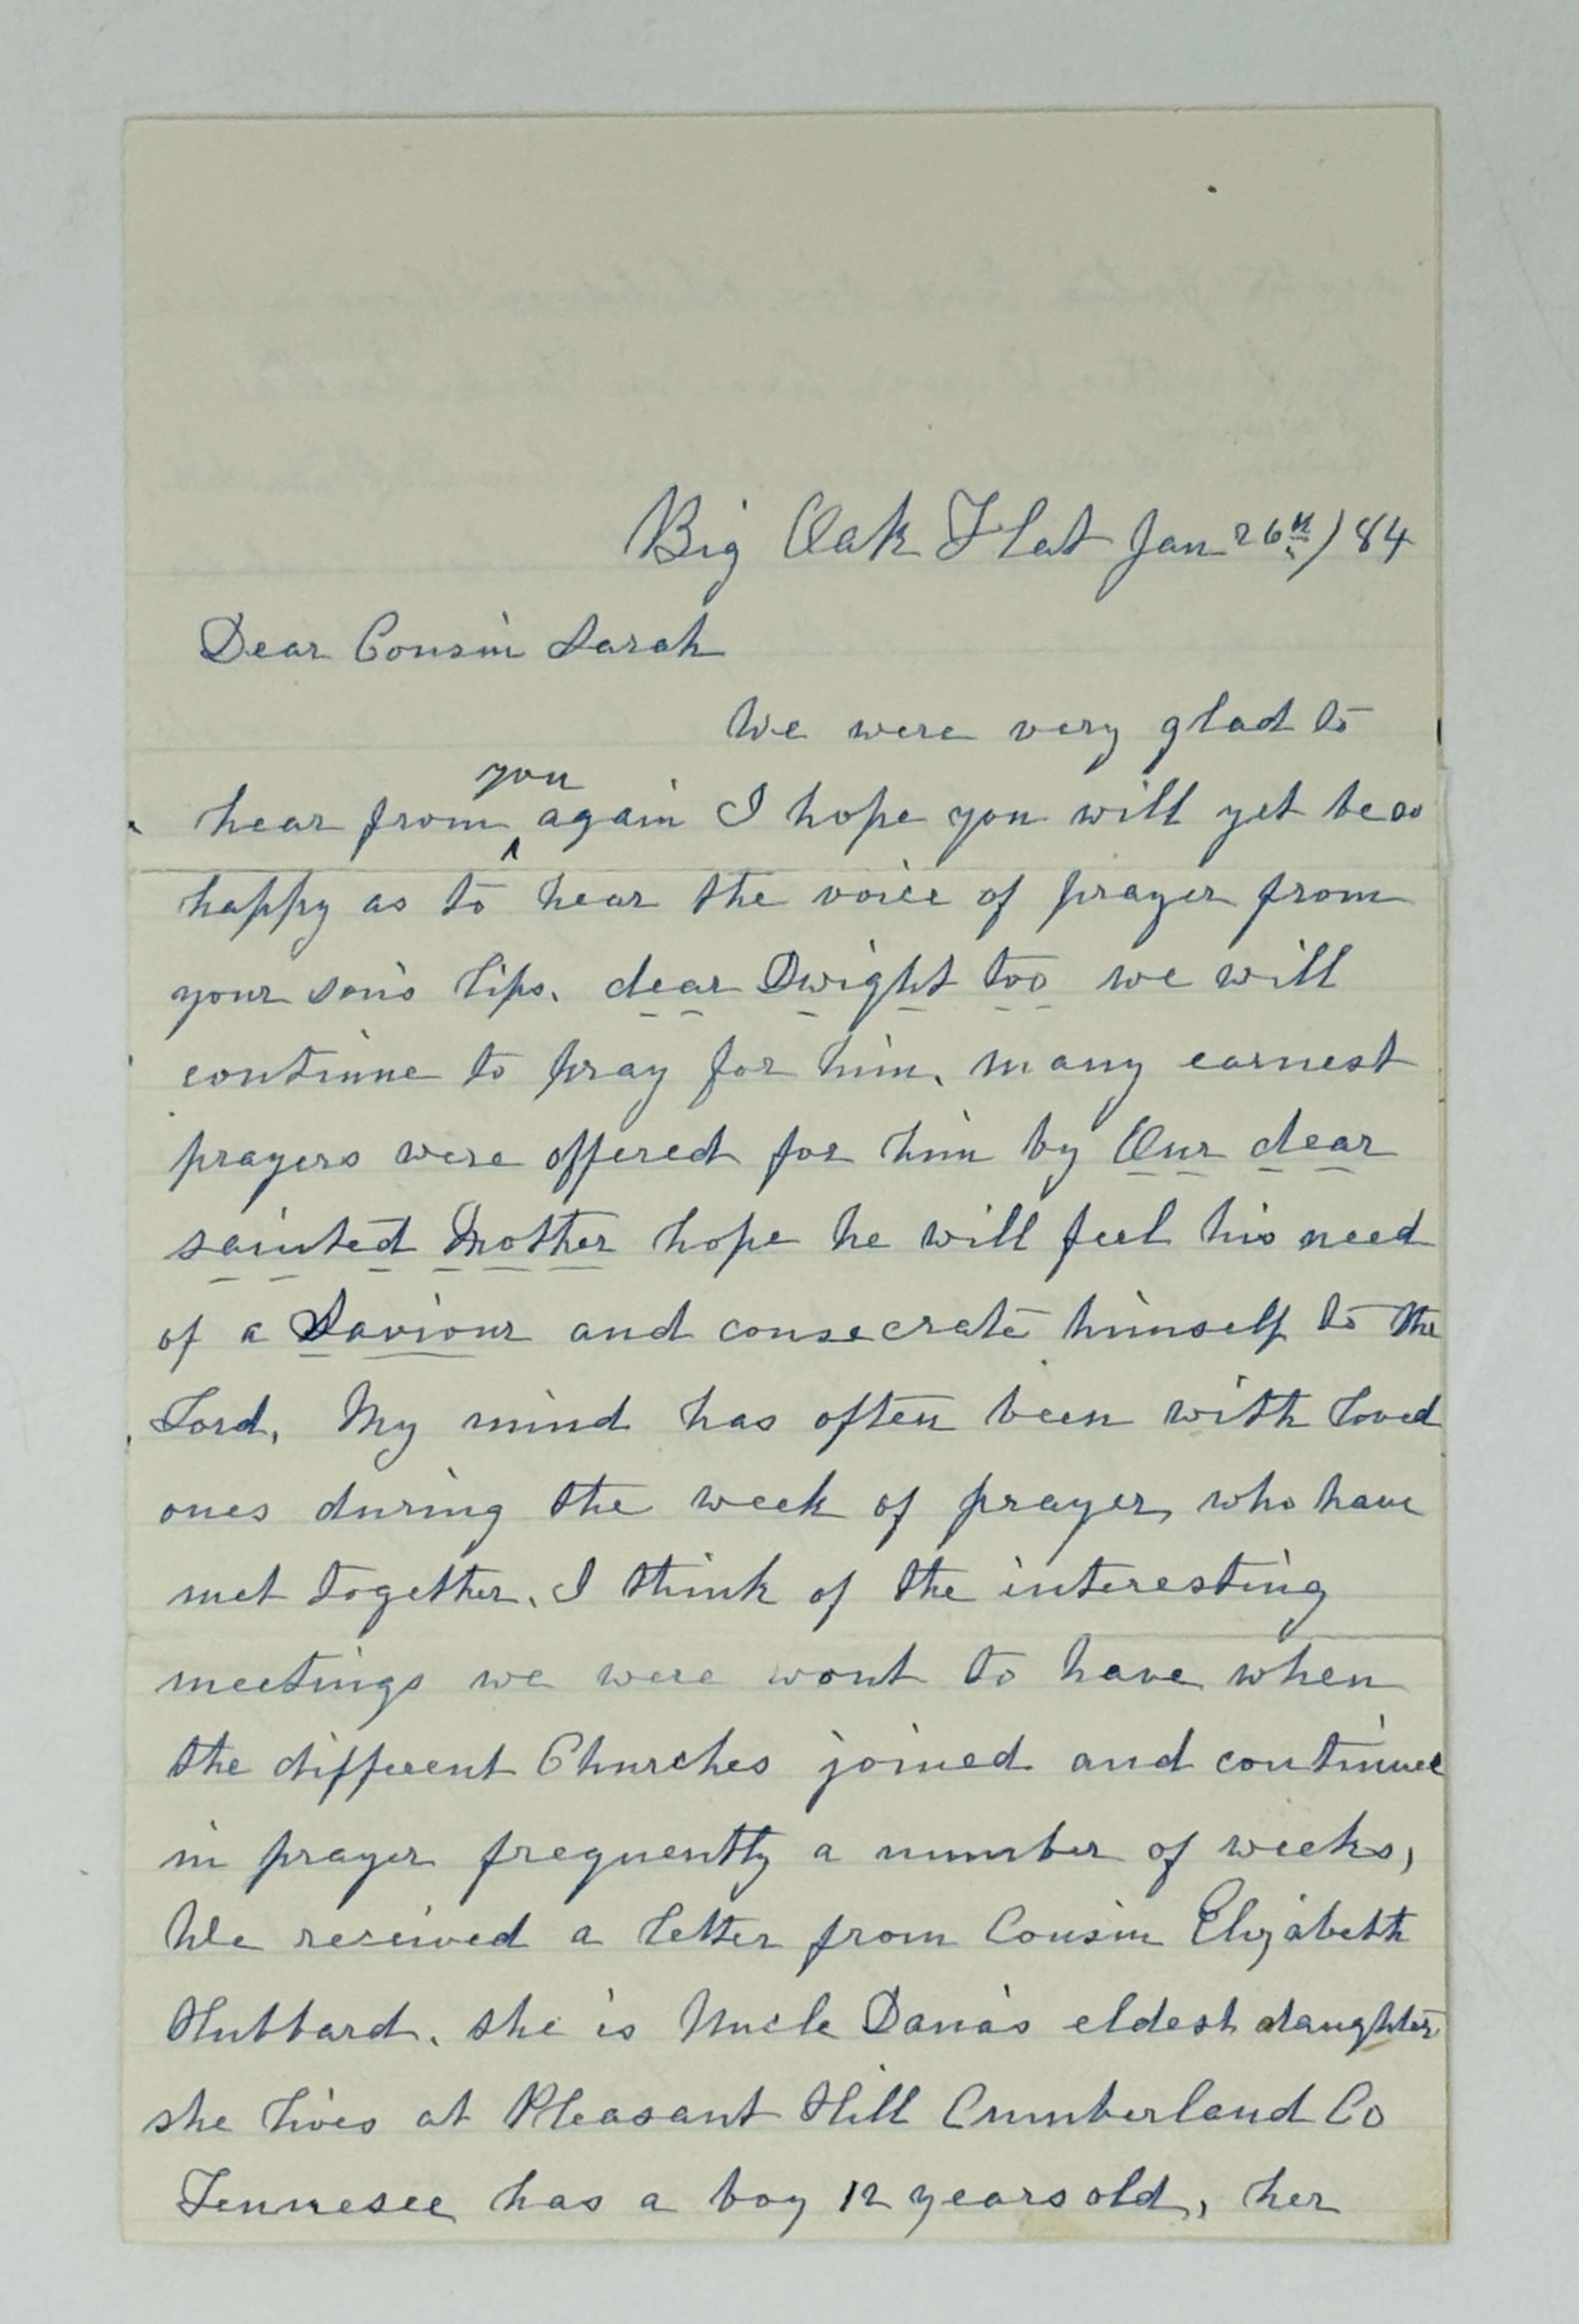 Big Oak Flat Jan 26th / 84
Dear Cousin Sarah
We were very glad to
you
hear from ^ again I hope you will yet be so
happy as to hear the voice of prayer from
your son's lips. dear Dwight too we will
continue to pray for him. many earnest
prayers were offered for him by Our dear
sainted Mother hope he will feel his need
of a Saviour and consecrate himself to the
Lord, My mind has often been with loved
ones during the week of prayer, who have
met together. I think of the interesting
meetings we were wont to have when
the different Churches joined and continued
in prayer frequently a number of weeks,
We received a letter from Cousin Elizabeth
Hubbard. she is Uncle Dana's eldest daughter
she lives at Pleasant Hill Cumberland Co
Tennesee has a boy 12 years old, her